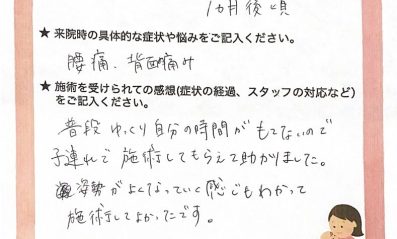 1ヵ月後頃
★来院時の具体的な症状や悩みをご記入ください。
腰痛、背面痛み
★施術を受けられての感想(症状の経過、スタッフの対応など)
をご記入ください。
普段ゆっくり自分の時間がもてないので
子連れで施術してもらえて助かりました。
姿勢がよくなっていく感じもわかって
施術してよかったです。